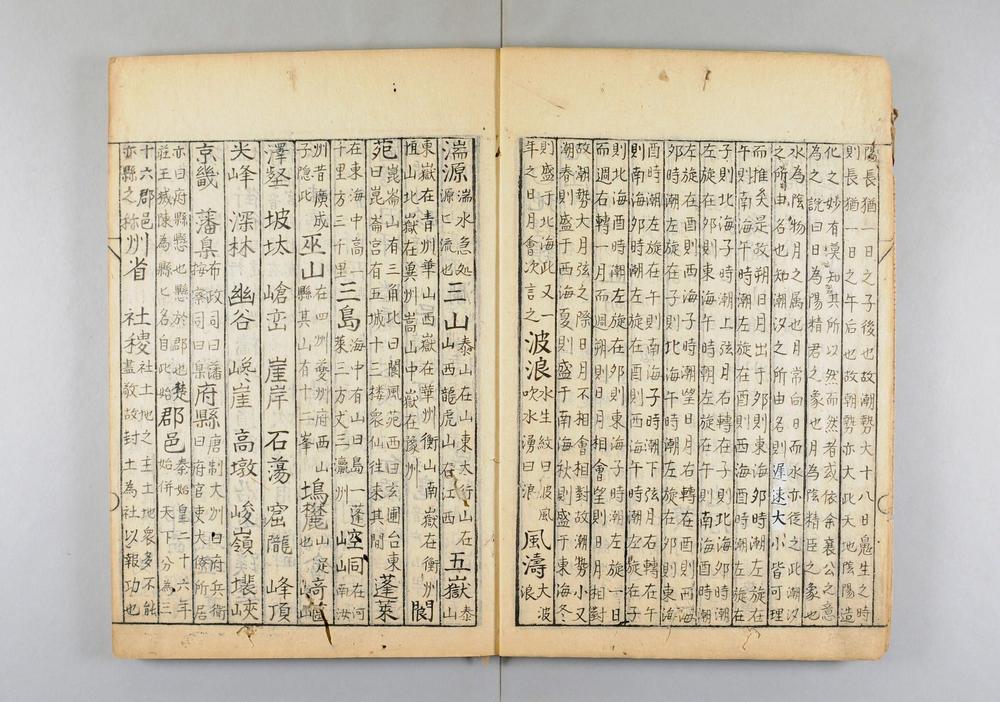 陽長猶一日之子後也故潮勢大十八日息生之時
則長猶一日之午后也故潮勢亦大此天地陰陽造
化之妙有莫知其所以然而然者或依余襄公之意
為之說曰日為陽精君之象也月為陰精臣之象也
水為陰物月之属也月常向日而水亦從之此潮汐
之所由名也知潮汐之所由名則遲速大小皆可理
而推矣是故朔日月出于夘則東海夘時潮左旋在
午則南海午時潮左旋在酉則西海酉時潮左旋在
子則北海子時潮上弦月右轉在子則北海
左旋在夘則東海
左旋在酉則西海 時潮望日月右轉在酉則西海
夘時潮左旋在 則北海午時潮左旋在夘則東海
酉時潮左旋在午則南海子時潮下弦月右轉在午
則南海 時潮左旋在酉則西海 時潮左旋在子
則北海酉時潮左旋在夘則東海子時潮左旋一日
而一週右轉一月而一週朔則日月相會望則日月相對
故潮勢大月弦之際日月不相會對故潮勢小又
潮春則盛于西海夏則盛于南海秋則盛于東海冬
則盛于北海此又一年之日月會次言之 波浪 水生紋曰波風吹水湧曰浪 風濤 大波浪
湍源 湍水急処源匕流也 三山 泰山在山東大行山在山西龍虎山在江西 五嶽 泰山
東嶽在青州華山西嶽在華州衡山南嶽在衡州
恒山北嶽在冀州嵩山中嶽在豫州 閬
苑 崑崙山有三角北曰閬風苑西曰玄圃台東曰崑崙宮有五城十二楼衆仙往来其間 蓬萊
在東海中高一千里方三千里 三島 海中有山曰島一蓬萊二方丈三瀛州 崆峒 在河南汝
州昔廣成子隱此 巫山 在四州夔州府西山縣其山有十二峯 塢麓 山
澤壑 坡坮 嵢峦 崖岸 石蕩 窟隴 峰頂
尖峰 深林 幽谷 崖 高墩 峻嶺 峽
京畿 藩臬 布政司曰藩按察司曰臬 府縣 唐制大州曰府兵衛曰府官吏大條所居
亦曰府縣懸也懸於郡也楚莊王滅陳為縣匕名自此始 郡邑 秦始皇二十六年始併天下分為三
十六郡邑亦縣之称 州省 社稷 社土地之主土地衆多不能盡敬故封土為社以報功也